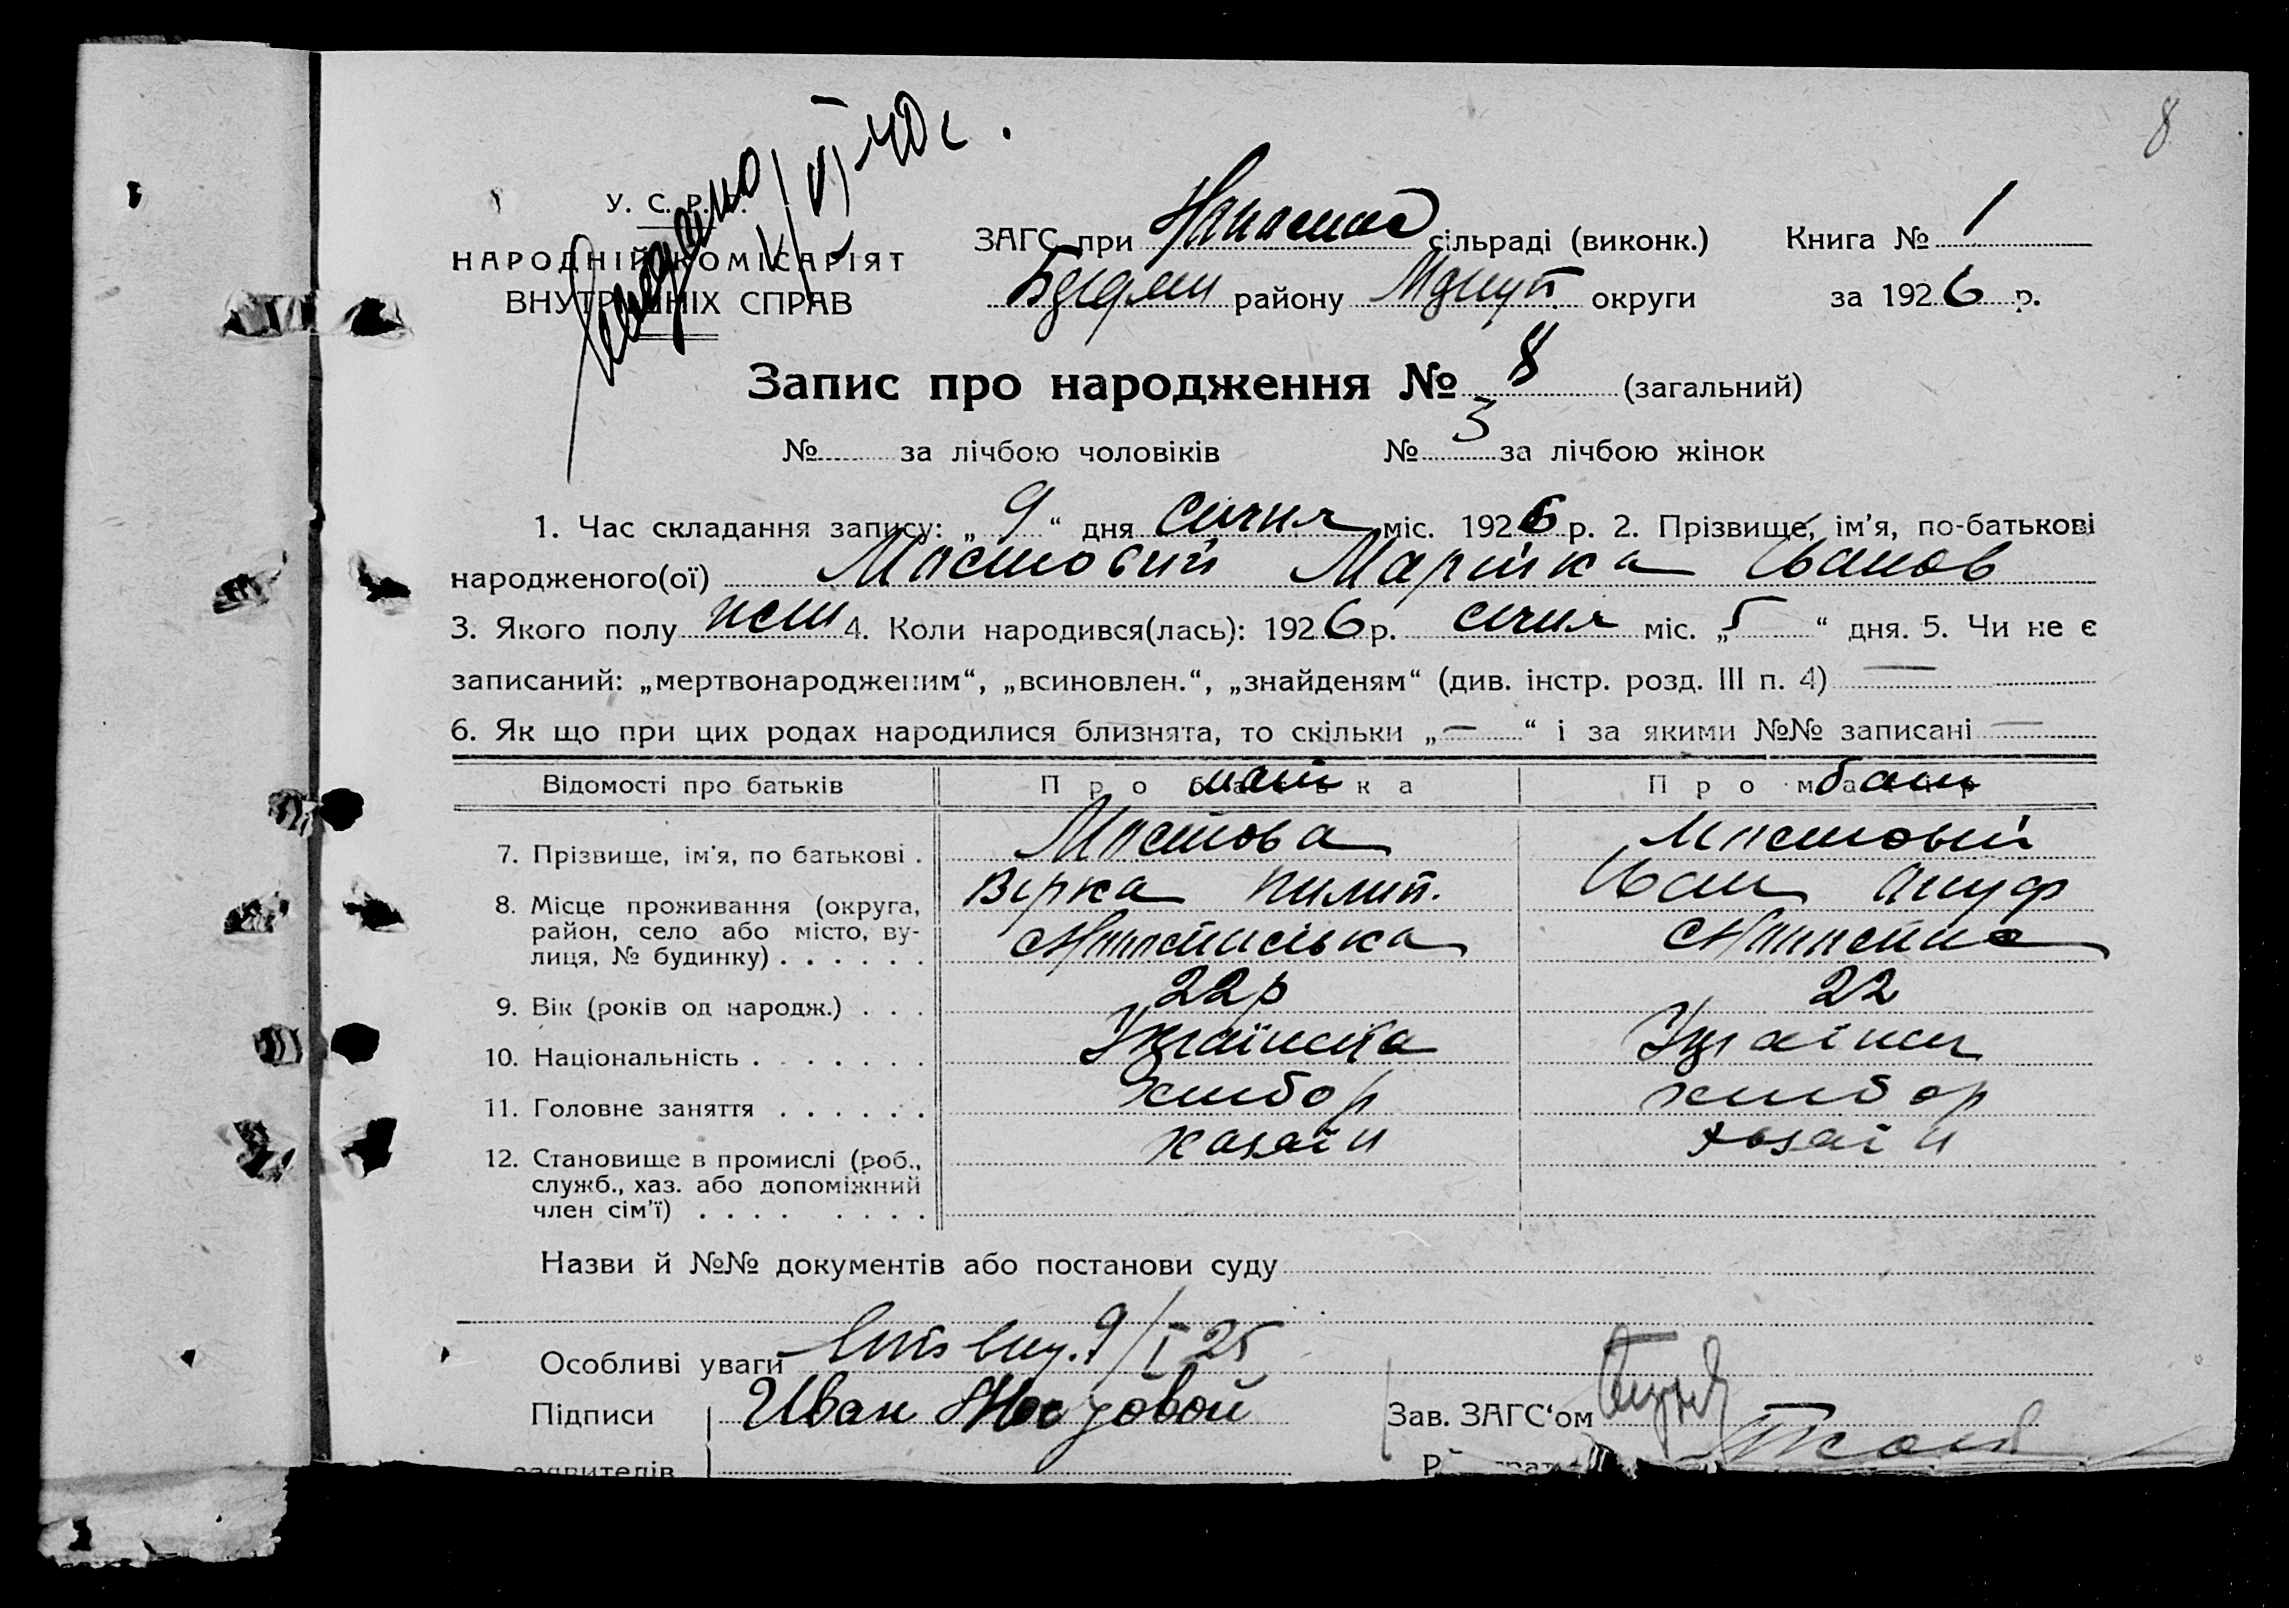 8
У. С. Р. Р.
НАРОДНІЙ КОМІСАРІЯТ
ВНУТРІШНІХ СПРАВ
ЗАГС при сільраді (виконк.) Книга № 1
району округи за 1926 р.
Запис про народження № 8 (загальний)
№ за лічбою чоловіків № 3 за лічбою жінок
1. Час складання запису: „9“ дня січня міс. 1926 р. 2. Прізвище, ім'я, по-батькові
народженого(ої) Мостовий Марійка Іванов
3. Якого полу жіш 4. Коли народився(лась): 1926 р. січня міс. „5“ дня. 5. Чи не є
записаний: „мертвонародженим“, „всиновлен.“, „знайденям“ (див. інстр. розд. III п. 4) —
6. Як що при цих родах народилися близнята, то скільки „—“ і за якими №№ записані —
Відомості про батьків Про батька мати Про матір батьк
7. Прізвище, ім'я, по батькові . Мостова Мостовий
Вірка Пилип. Іван
8. Місце проживання (округа,
район, село або місто, ву-
лиця, № будинку) . . . . . .
9. Вік (років од народж.) . . . 22р 22
10. Національність . . . . . . . Українка Українец
11. Головне заняття . . . . . . хлібор хлібор
12. Становище в промислі (роб., хазаїн хазаїн
служб., хаз. або допоміжний
член сім'ї) . . . . . . . .
Назви й №№ документів або постанови суду
Особливі уваги 9/I 25
Підписи Иван Мостовой Зав. ЗАГС'ом
заявителів